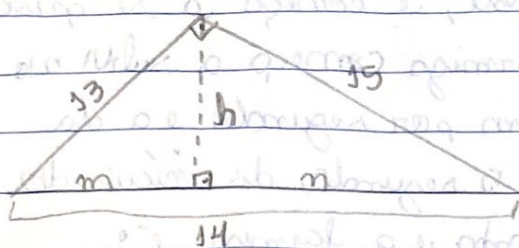 13
15
h
m
n
14